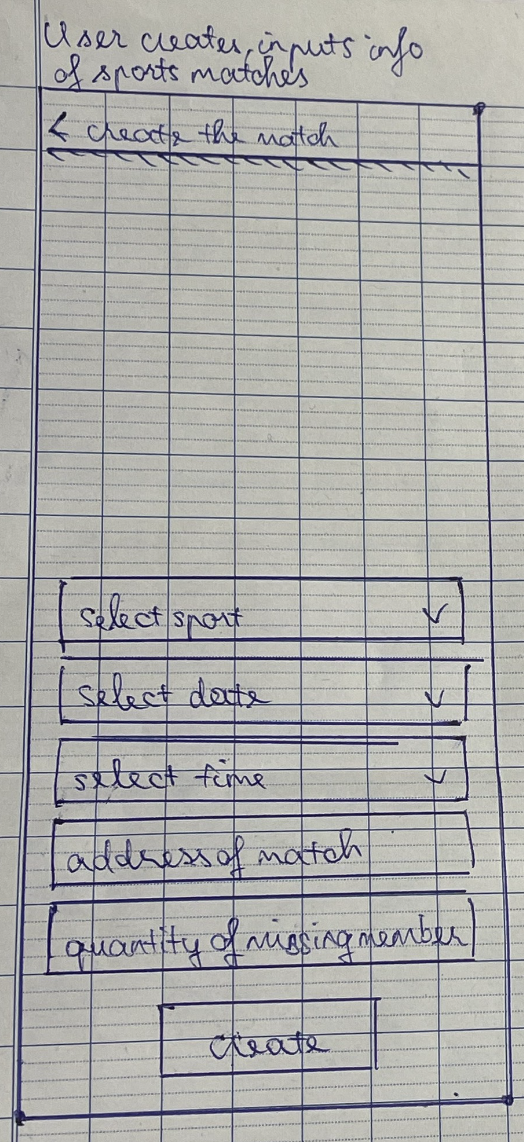 User creates, inputs info
of sports matches
< create the match
select sport
select date
select time
address of match
quantity of missing member
create